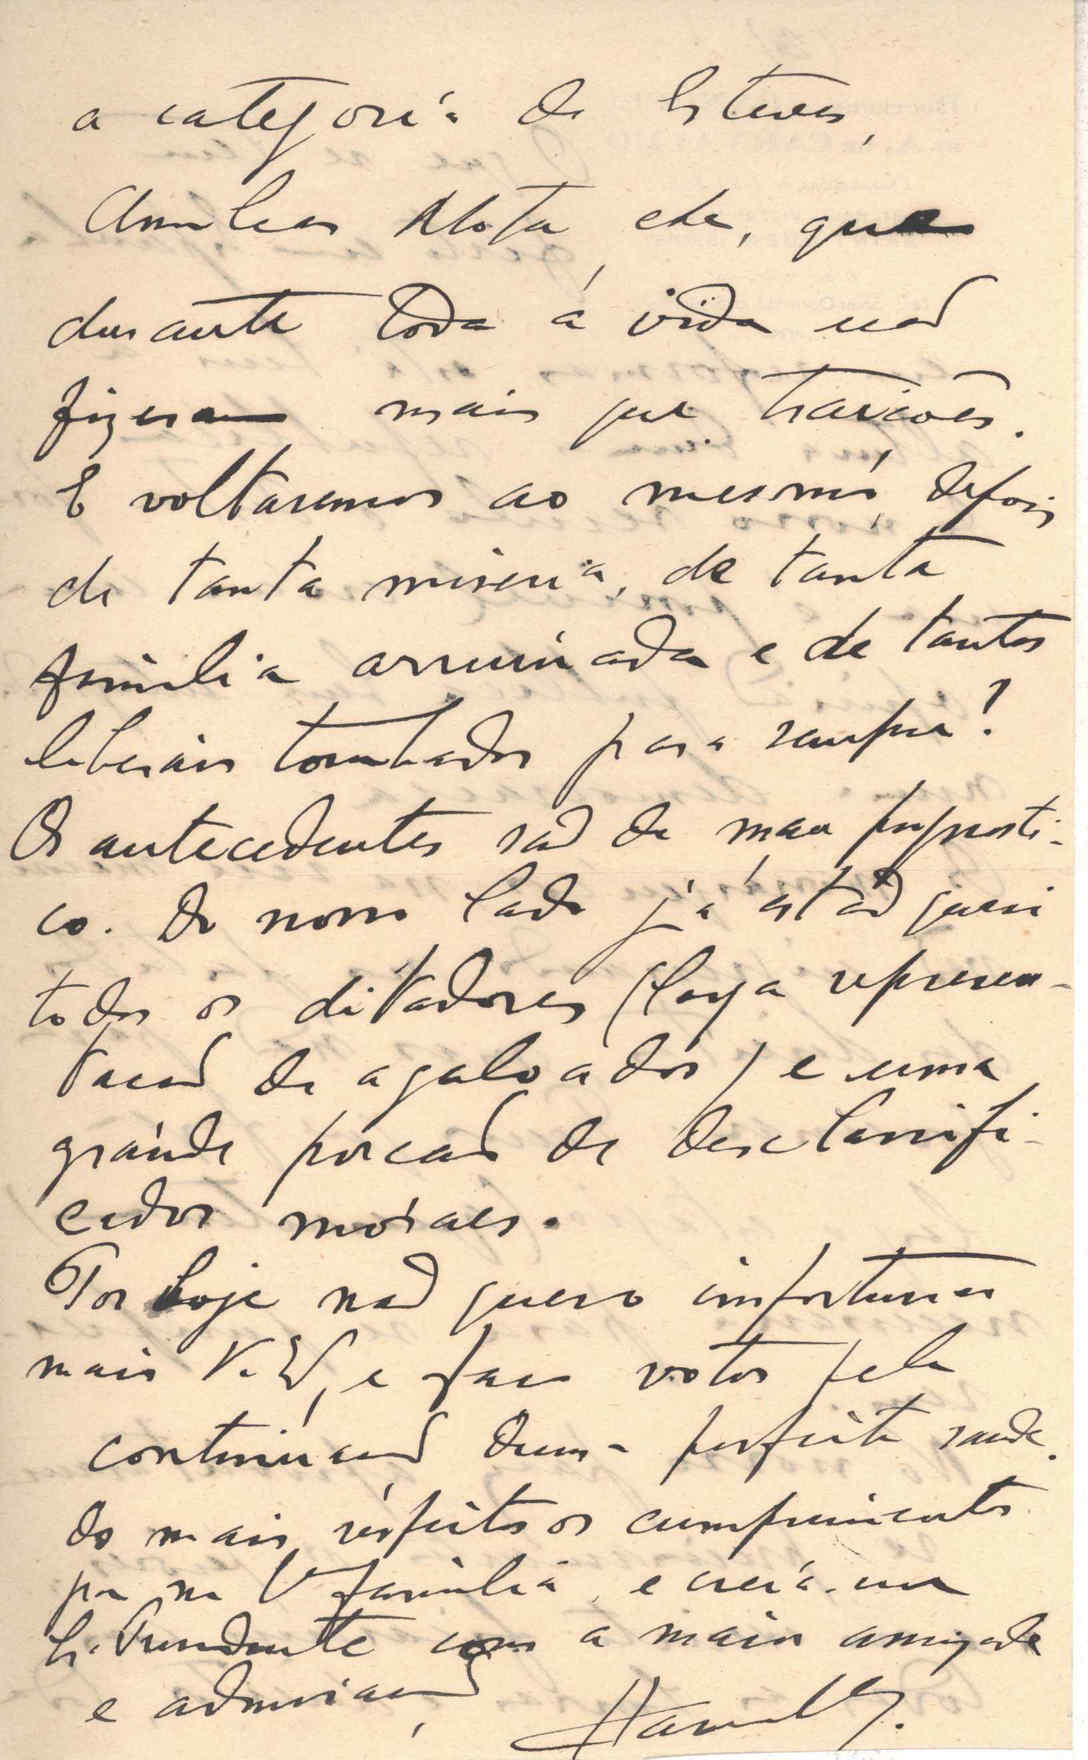 a categoria de Esteves,
Amilcar Mota, etc, que
durante toda a vida não
fizeram mais que traicões.
E voltaremos ao mesmo, depois
de tanta miseria, de tanta
familia arruinada e de tantos
liberais tombados para sempre!
Os antecedentes são de mau prognosti-
co. Do nosso lado já estão quasi
todos os ditadores (larga represen-
tacão de agaloados) e uma
grande porcão de desclassifi-
cados moraes.
Por hoje não quero importunar
mais V. Ex, e faco votos pela
continuacão duma perfeita saude.
Os mais respeitosos cumprimentos
para V familia, e creia-me
Sr. Presidente com a maior amizade
e admiracão,